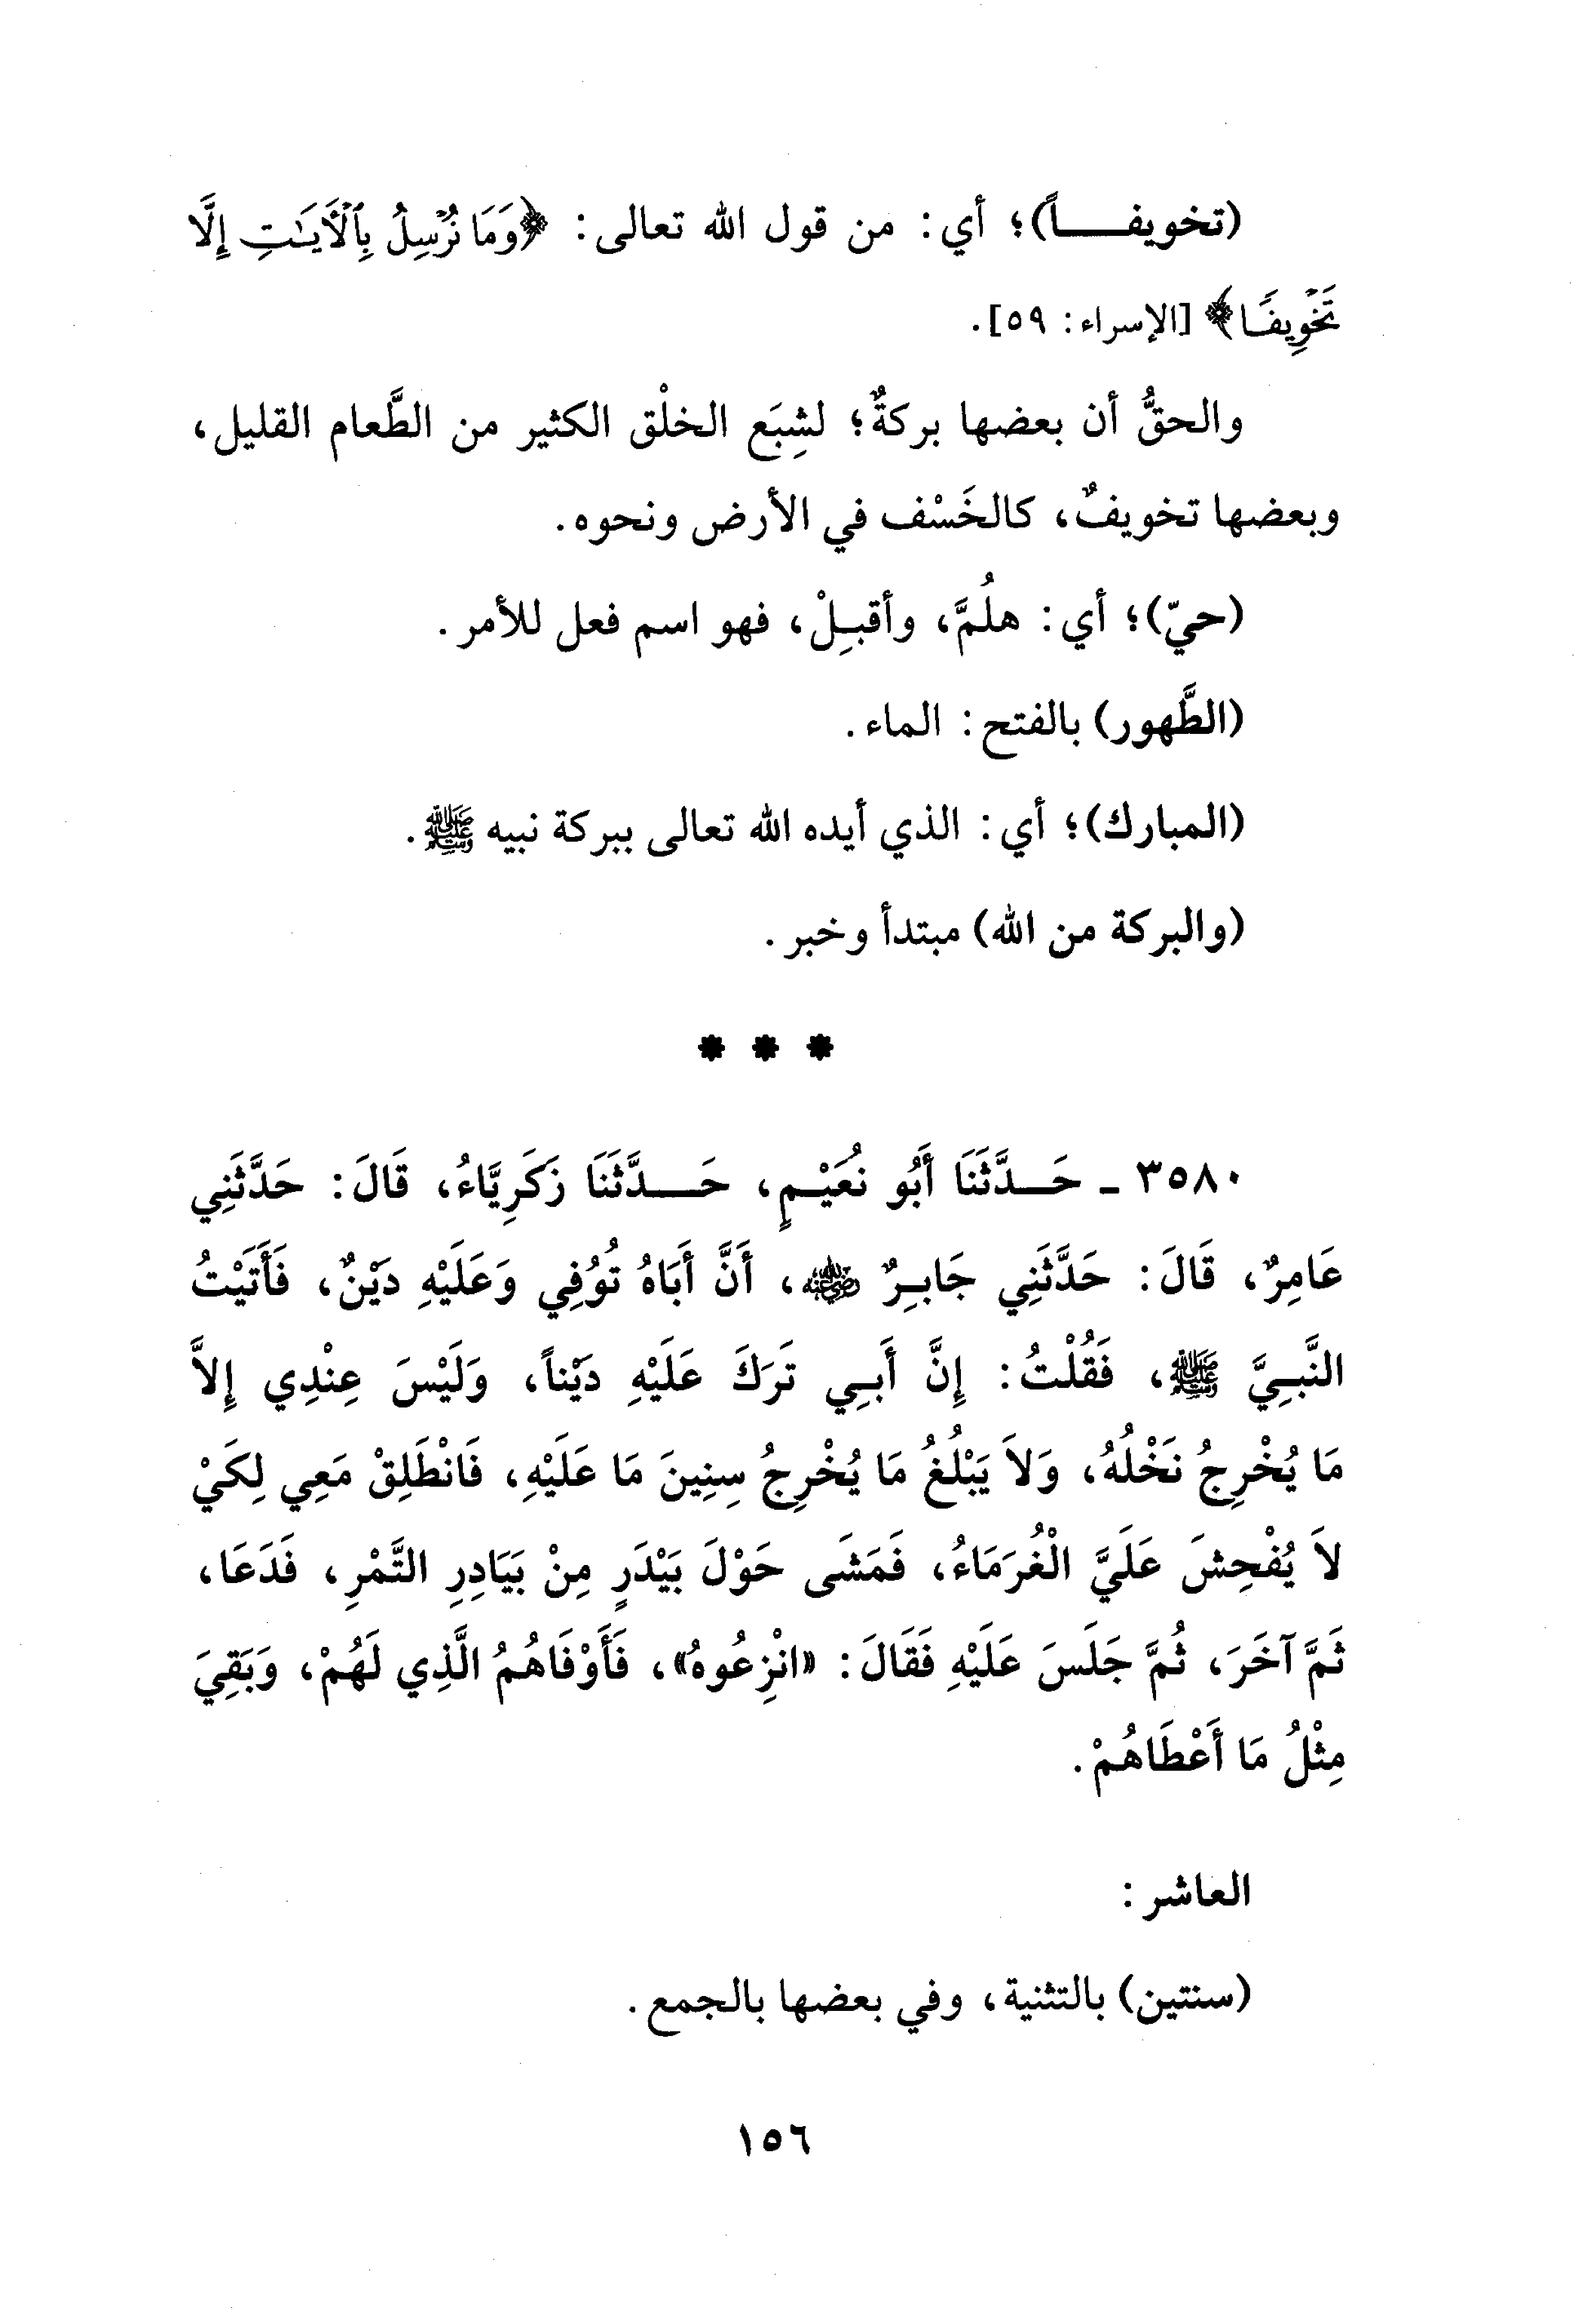 (تخويفـــاً)؛ أي: من قول الله تعالى: ﴿وَمَا نُرْسِلُ بِٱلْأَيَـٰتِ إِلَّا
تَخْوِيفًا﴾ [الإسراء: ٥٩].
والحقُّ أن بعضها بركةٌ؛ لشِبَع الخلْق الكثير من الطَّعام القليل،
وبعضها تخويفٌ، كالخَسْف في الأرض ونحوه.
(حيّ)؛ أي: هلُمَّ، وأقبِلْ، فهو اسم فعل للأمر.
(الطَّهور) بالفتح: الماء.
(المبارك)؛ أي: الذي أيده الله تعالى ببركة نبيه ﷺ.
(والبركة من الله) مبتدأ وخبر.
* * *
٣٥٨٠ - حَـدَّثَنَا أَبُو نُعَيْـمٍ، حَــدَّثَنَا زَكَرِيَّاءُ، قَالَ: حَدَّثَنِي
عَامِرٌ، قَالَ: حَدَّثَنِي جَابِـرٌ رضي الله عنه، أَنَّ أَبَاهُ تُوُفِي وَعَلَيْهِ دَيْنٌ، فَأَتَيْتُ
النَّبِـيَّ ﷺ، فَقُلْتُ: إِنَّ أَبِـي تَرَكَ عَلَيْهِ دَيْناً، وَلَيْسَ عِنْدِي إِلاَّ
مَا يُخْرِجُ نَخْلُهُ، وَلاَ يَبْلُغُ مَا يُخْرِجُ سِنِينَ مَا عَلَيْهِ، فَانْطَلِقْ مَعِي لِكَيْ
لاَ يُفْحِشَ عَلَيَّ الْغُرَمَاءُ، فَمَشَى حَوْلَ بَيْدَرٍ مِنْ بَيَادِرِ التَّمْرِ، فَدَعَا،
ثَمَّ آخَرَ، ثُمَّ جَلَسَ عَلَيْهِ فَقَالَ: «انْزِعُوهُ»، فَأَوْفَاهُمُ الَّذِي لَهُمْ، وَبَقِيَ
مِثْلُ مَا أَعْطَاهُمْ.
العاشر:
(سنتين) بالتثنية، وفي بعضها بالجمع.
١٥٦